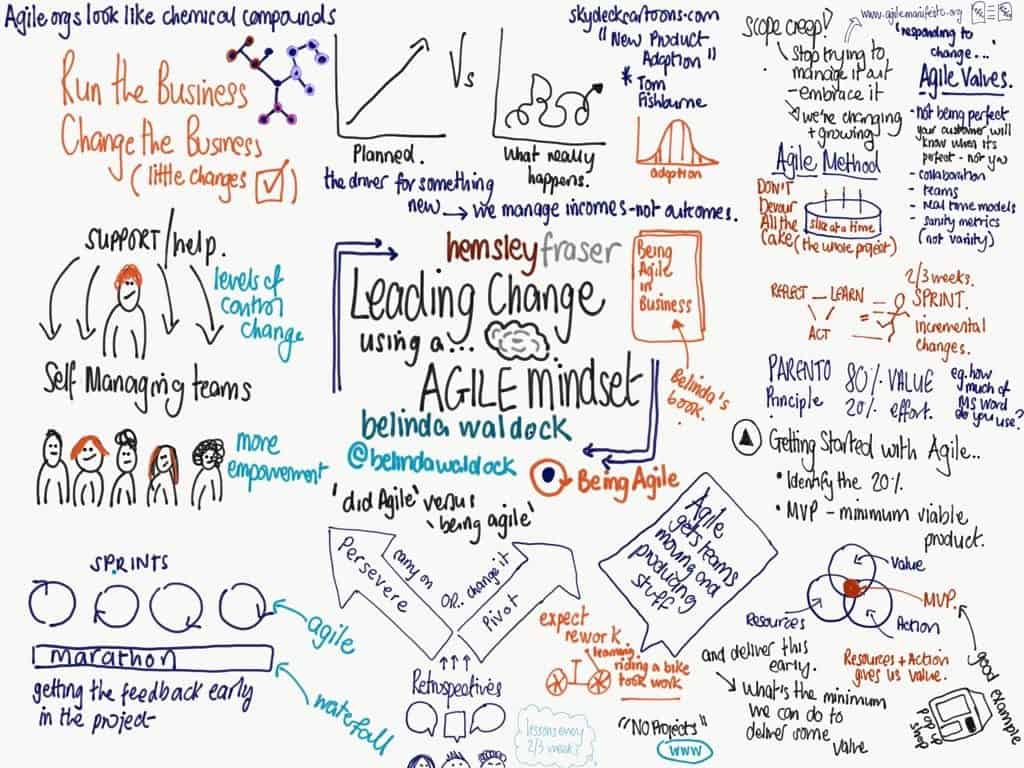 Agile orgs look like chemical compounds
Run the Business
Change the Business
(little changes ☑)
Planned.
Vs
What really
happens.
the driver for something
new → we manage incomes - not outcomes.
skydeckcartoons.com
"New Product
Adoption"
* Tom
Fishburne
adoption
Scope creep!
Stop trying to
manage it out
- embrace it
we're changing
+ growing
www.agilemanifesto.org
'responding to
change...
Agile Values.
- not being perfect
your customer will
know when it's
perfect - not you
- collaboration
- teams
- real time models
- sanity metrics
(not vanity)
Agile Method
DON'T
Devour
All the
Cake (the whole project)
slice at a time
SUPPORT/help.
levels of
control
change
Self Managing teams
more
empowerment
hemsleyfraser
Leading Change
using a...
AGILE mindset
belinda waldock
@belindawaldock
Being Agile
Being
Agile
in
Business
Belinda's
book.
2/3 weeks.
REFLECT – LEARN
ACT
SPRINT.
incremental
changes.
PARENTO
Principle
80% VALUE
20% effort.
eg. how
much of
MS Word
do you use?
Getting Started with Agile...
• Identify the 20%.
• MVP - minimum viable
product.
Value
MVP.
Resources
Action
Resources + Action
gives us value.
good example
pop up
shop
'did Agile' versus
'being agile'
Persevere
carry on
OR..
change it
Pivot
Retrospectives
lessons every
2/3 weeks
Agile
gets teams
moving and
producing
stuff
expect
rework
learning
riding a bike
took work
"No Projects"
www
and deliver this
early.
What's the minimum
we can do to
deliver some
value
SPRINTS
agile
marathon
waterfall
getting the feedback early
in the project-